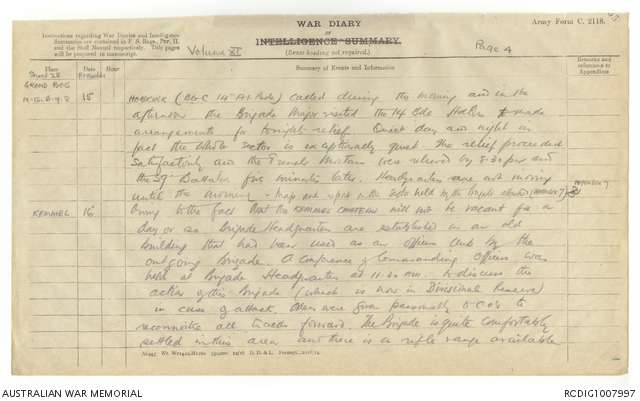 WAR DIARY
or
INTELLIGENCE SUMMARY.
(Erase heading not required.)
Army Form C. 2118.
Instructions regarding War Diaries and Intelligence
Summaries are contained in F. S. Regs., Part II.
and the Staff Manual respectively. Title pages
will be prepared in manuscript.
Volume XI
Page 4
Place
Date
Hour
Summary of Events and Information
Remarks and
reference to
Appendices
Sheet 28
GRAND BOIS
15
(BGC 14 Bde) called during the morning and in the
afternoon the Brigade Major visited the 14 Bde Hdqrs & made
arrangements for tonight's relief. Quiet day and night in
fact the whole sector is exceptionally quiet. The relief proceeded
satisfactorily and the Trench Mortars were relieved by 8.30 pm and
the 39 Battalion five minutes later. Headquarters are not moving
until the morning - Map and report on the Sector held by the Brigade attached (Appendix 7)
Appendix 7
KEMMEL
16
Owing to the fact that the KEMMEL CHATEAU will not be vacant for a
day or so Brigade Headquarters are established in an old
building that had been used as an Officers Club by the
outgoing Brigade. A Conference of Commanding Officers was
held at Brigade Headquarters at 11.30 am. to discuss the
action of this Brigade (which is now in Divisional Reserve)
in case of attack. Orders were given personally to C.O's to
reconnoitre all tracks forward. The Brigade is quite comfortably
settled in this area and there is a rifle range available
D. D. & L.
AUSTRALIAN WAR MEMORIAL
RCDIG1007997